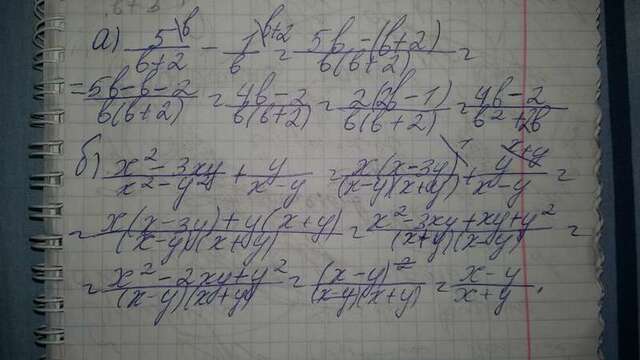 а) 5\b/(b+2) - 1\b+2/b = (5b-(b+2))/(b(b+2)) =
= (5b-b-2)/(b(b+2)) = (4b-2)/(b(b+2)) = 2(2b-1)/(b(b+2)) = (4b-2)/(b²+2b)
б) (x²-3xy)/(x²-y²) + y/(x-y) = x(x-3y)\1/((x-y)(x+y)) + y\x+y/(x-y) =
= (x(x-3y)+y(x+y))/((x-y)(x+y)) = (x²-3xy+xy+y²)/((x+y)(x-y)) =
= (x²-2xy+y²)/((x-y)(x+y)) = (x-y)²/((x-y)(x+y)) = (x-y)/(x+y).